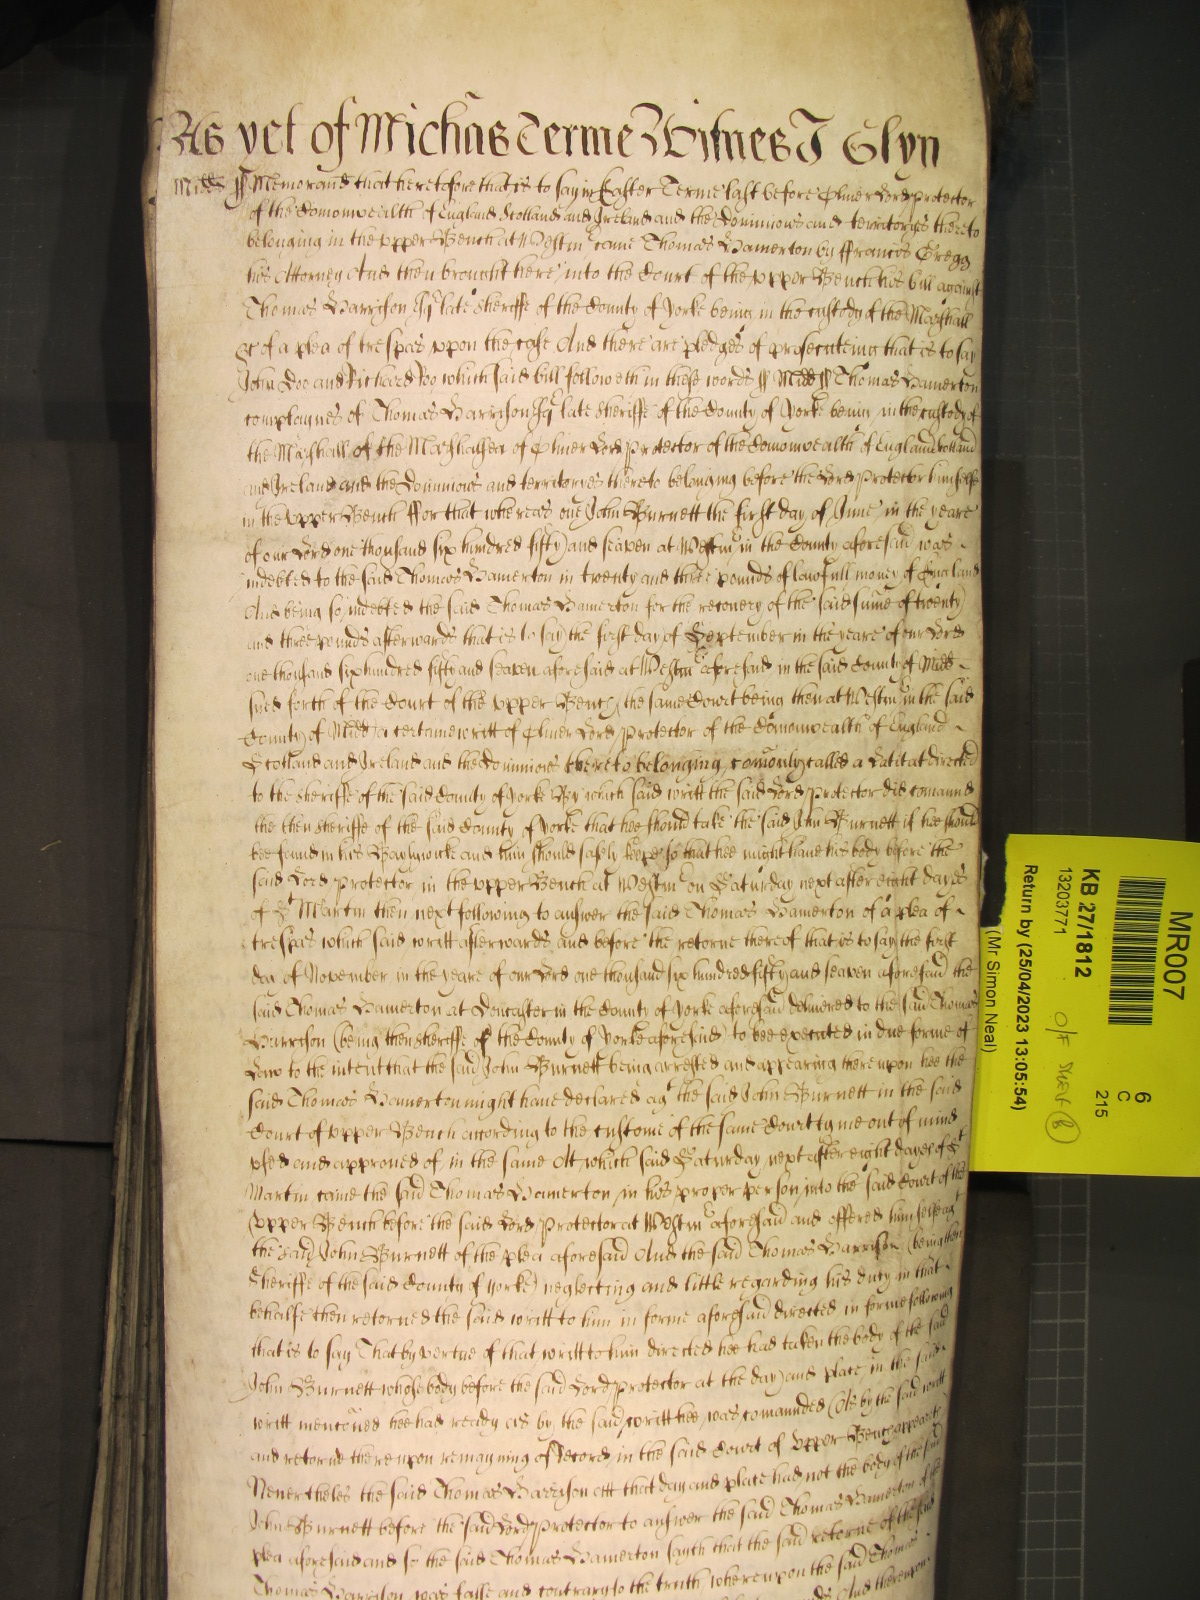 As yet of Michās Terme Witnes J Glyn
Midds ss Memorand that heretofore that is to say in Easter Terme last before Oliver Lord Protector
of the Comonwealth of England Scotland and Ireland and the Dominions and territoryes thereto
belonging in the Upper Bench at Westm came Thomas Hamerton by Ffrancis Gregg
his Attorney And then brought here into the Court of the upper Bench his bill against
Thomas Harrison Esq late Sheriffe of the County of Yorke being in the custody of the Marshall
&c of a plea of trespas upon the case And there are pledges of prosecuteing that is to say
John Doe and Richard Roo which said bill followeth in these words ss Midd ss Thomas Hamerton
complaynes of Thomas Harrison Esq late Sheriffe of the County of Yorke being in the custody of
the Marshall of the Marshalsea of Oliver Lord Protector of the Comonwealth of England Scotland
and Ireland and the Dominions and territoryes thereto belonging before the Lord Protector himselfe
in the Upper Bench Ffor that whereas one John Burnett the first day of June in the yeare
of our Lord one thousand six hundred fifty and seaven at Westm in the County aforesaid was
indebted to the said Thomas Hamerton in twenty and three pounds of lawfull money of England
And being so indebted the said Thomas Hamerton for the recovery of the said sume of twenty
and three pounds afterwards that is to say the first day of September in the yeare of our Lord
one thousand six hundred fifty and seaven aforesaid at Westm aforesaid in the said County of Midd
sued forth of the Court of the Upper Bench the same Court being then at Westm in the said
County of Midd a certaine writt of Oliver Lord Protector of the Comonwealth of England
Scotland and Ireland and the Dominions thereto belonging comonly called a Latitat directed
to the Sheriffe of the said County of Yorke By which said writt the said Lord Protector did comannd
the then Sheriffe of the said County of Yorke that hee should take the said John Burnett if hee should
bee found in his Baylywicke and him should safely keepe so that hee might have his body before the
said Lord Protector in the upper Bench at Westm on Saturday next after eight dayes
of St Martin then next following to answer the said Thomas Hamerton of a plea of
trespas which said writt afterwards and before the retorne thereof that is to say the first
day of November in the yeare of our Lord one thousand six hundred fifty and seaven aforesaid the
said Thomas Hamerton at Doncaster in the County of Yorke aforesaid delivered to the said Thomas
Harrison (being then Sheriffe of the County of Yorke aforesaid) to bee executed in due forme of
Law to the intent that the said John Burnett being arrested and appearing thereupon hee the
said Thomas Hamerton might have declared agt the said John Burnett in the said
Court of Upper Bench according to the custome of the same Court tyme out of mind
used and approved of in the same At which said Saturday next after eight dayes of St
Martin came the said Thomas Hamerton in his proper person into the said Court of the
Upper Bench before the said Lord Protector at Westm aforesaid and offered himselfe agt
the said John Burnett of the plea aforesaid And the said Thomas Harrison (being then
Sheriffe of the said County of Yorke) neglecting and little regarding his duty in that
behalfe then retorned the said writt to him in forme aforesaid directed in forme following
that is to say That by vertue of that writt to him directed hee had taken the body of the said
John Burnett whose body before the said Lord Protector at the day and place in the said
writt mencōned hee had ready as by the said writt hee was comannded (As by the said writt
and retorne thereupon remayning of Record in the said Court of Upper Bench appeareth
Nevertheles the said Thomas Harrison att that day and place had not the body of the said
John Burnett before the said Lord Protector to answer the said Thomas Hamerton of the
plea aforesaid and so the said Thomas Hamerton sayth that the said retorne of the said
Thomas Harrison was false and contrary to the truth whereupon the said Thomas
And thereupon
MR007
6
C
215
KB 27/1812
13203771
O/F
Return by (25/04/2023 13:05:54)
(Mr Simon Neal)